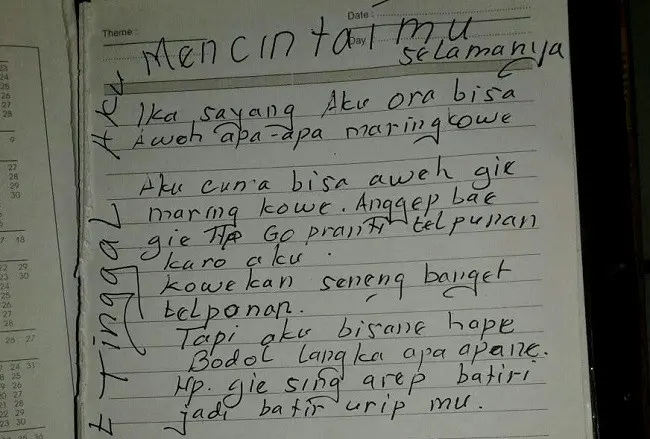 Theme :
Date :
Day
Mencintai mu
selamanya
Ika sayang Aku ora bisa
Aweh apa-apa maring kowe
Aku cuma bisa aweh gie
maring kowe. Anggep bae
gie Hp Go pranti telpunan
karo aku.
kowekan seneng banget
telponan.
Tapi aku bisane hape
Bodol langka apa apane.
Hp. gie sing arep batiri
jadi batir urip mu.
Tinggal